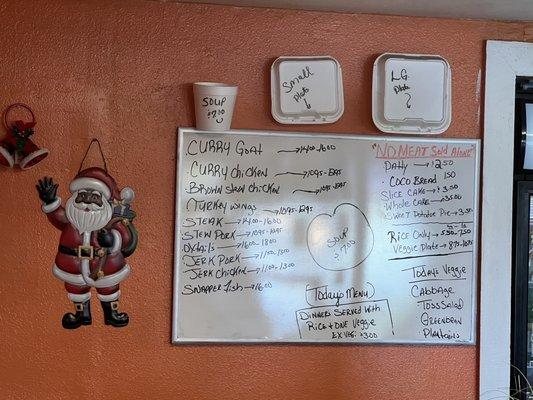 SOUP
$7.00
Small
Plate
LG
Plate
?
CURRY Goat → 1400-1600
CURRY Chicken → 1095-1295
Brown Stew Chicken → 1095-1295
Turkey wings → 1095-1295
STEAK → 1400-1600
STEW PORK → 1095-1295
Oxtails → 1600-1800
JERK PORK → 1150-1350
Jerk Chicken → 1100-1300
Snapper fish → 1600
SOUP
$7.00
Today's Menu
DINNERS SERVED with
Rice + ONE Veggie
EX VEG. $3.00
"NO MEAT Sold Alone"
Patty → $2.50
COCO BREAD 1.50
Slice CAKE → $3.50
Whole CAKE → 35.00
Sweet Potatoe Pie → 3.50
Rice Only → 5.50-7.50
Veggie Plate → 8.75-10.75
Todays Veggie
Cabbage
Toss Salad
Green Bean
Plantains